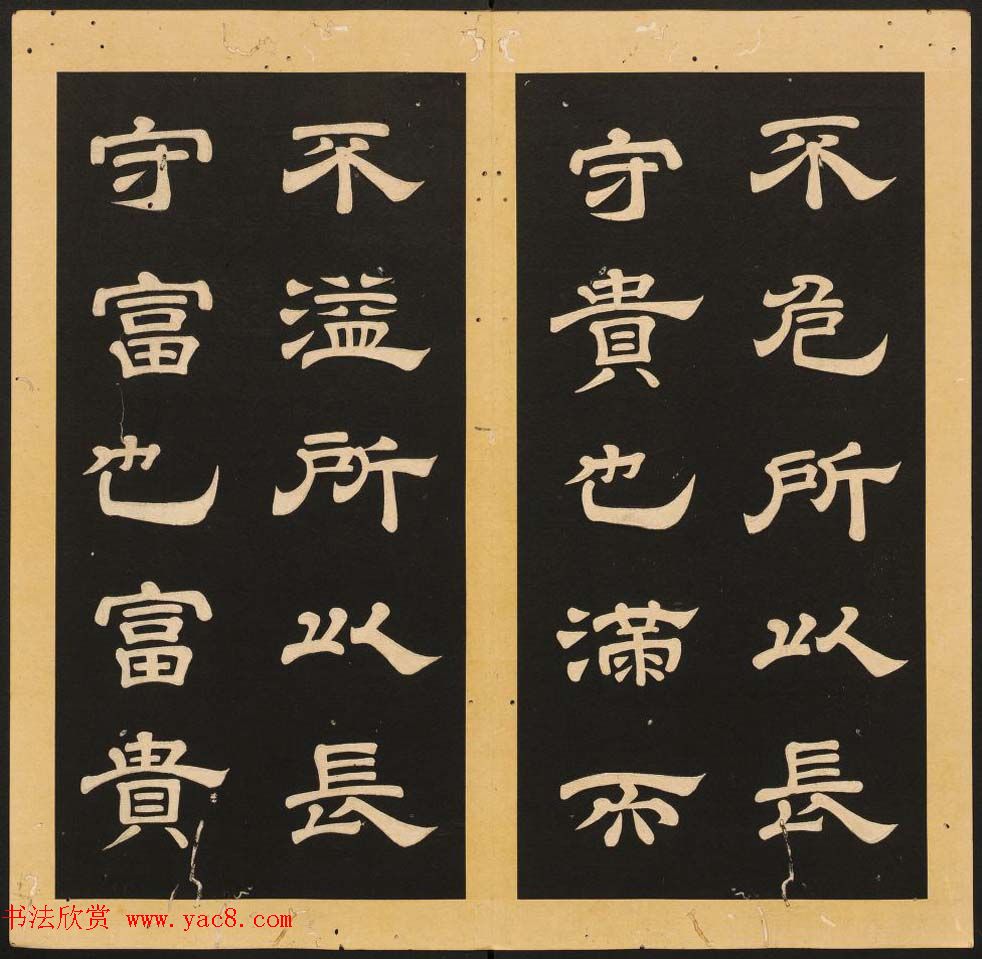 不危所以長
守貴也滿而
不溢所以長
守富也富貴
书法欣赏 www.yac8.com